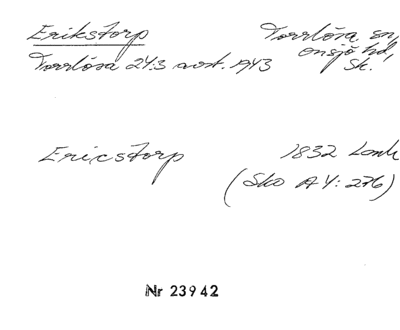 Erikstorp
Torrlösa sn,
Onsjö hd,
Sk.
Torrlösa 24:3 avst. 1943
Ericstorp 1832 Lantm
(Sko A4: 276)
Nr 23942